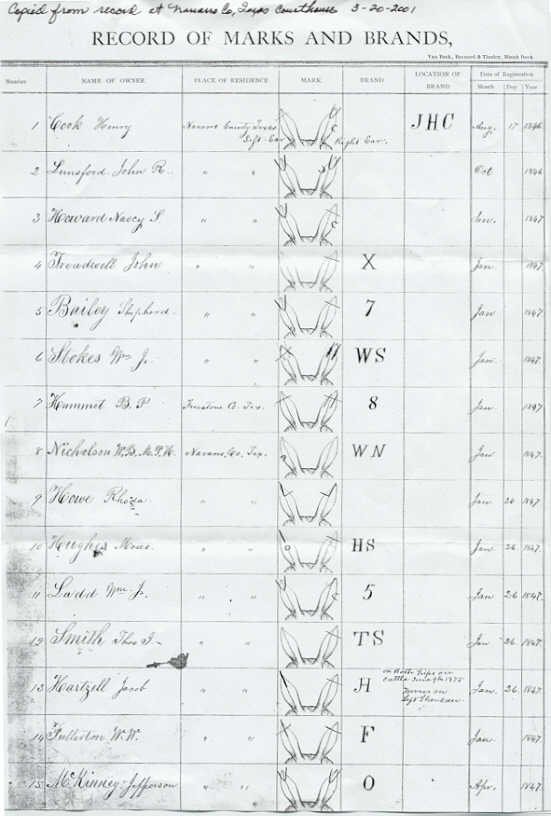 Copied from record at Navarro Co, Texas Courthouse 3-20-2001
RECORD OF MARKS AND BRANDS,
Number NAME OF OWNER. PLACE OF RESIDENCE MARK BRAND LOCATION OF BRAND Date of Registration
Month Day Year
1 Cook Henry Navarro County Texas Left Ear Right Ear. JHC Aug. 17 1846
2 Lunsford John R. " " Oct 1846
3 Howard Nancy S. " " Jan. 1847
4 Treadwell John " " X Jan. 1847.
5 Bailey Shepherd " " 7 Jan 1847.
6 Stokes Wm J. " " WS Jan. 1847.
7 Hammit B. P Freestone Co. Tex. 8 Jan 1847
8 Nicholson W.B. M.P.H. Navarro, Co. Tex. WN Jan 1847.
9 Howe Rhoda " " Jan 26 1847.
10 Hughes Moses " " HS Jan 26 1847.
11 Ladd Wm J. " " 5 Jan 26 1847.
12 Smith Thos J- " " TS Jan 26. 1847.
13 Hartzell Jacob " " H on Both hips on
Cattle June 9th 1875
Horses on
Left Shoulder Jan. 26. 1847.
14 Fullerton W. W. " " F Jan. 1847.
15 McKinney Jefferson " " O Apr. 1847.